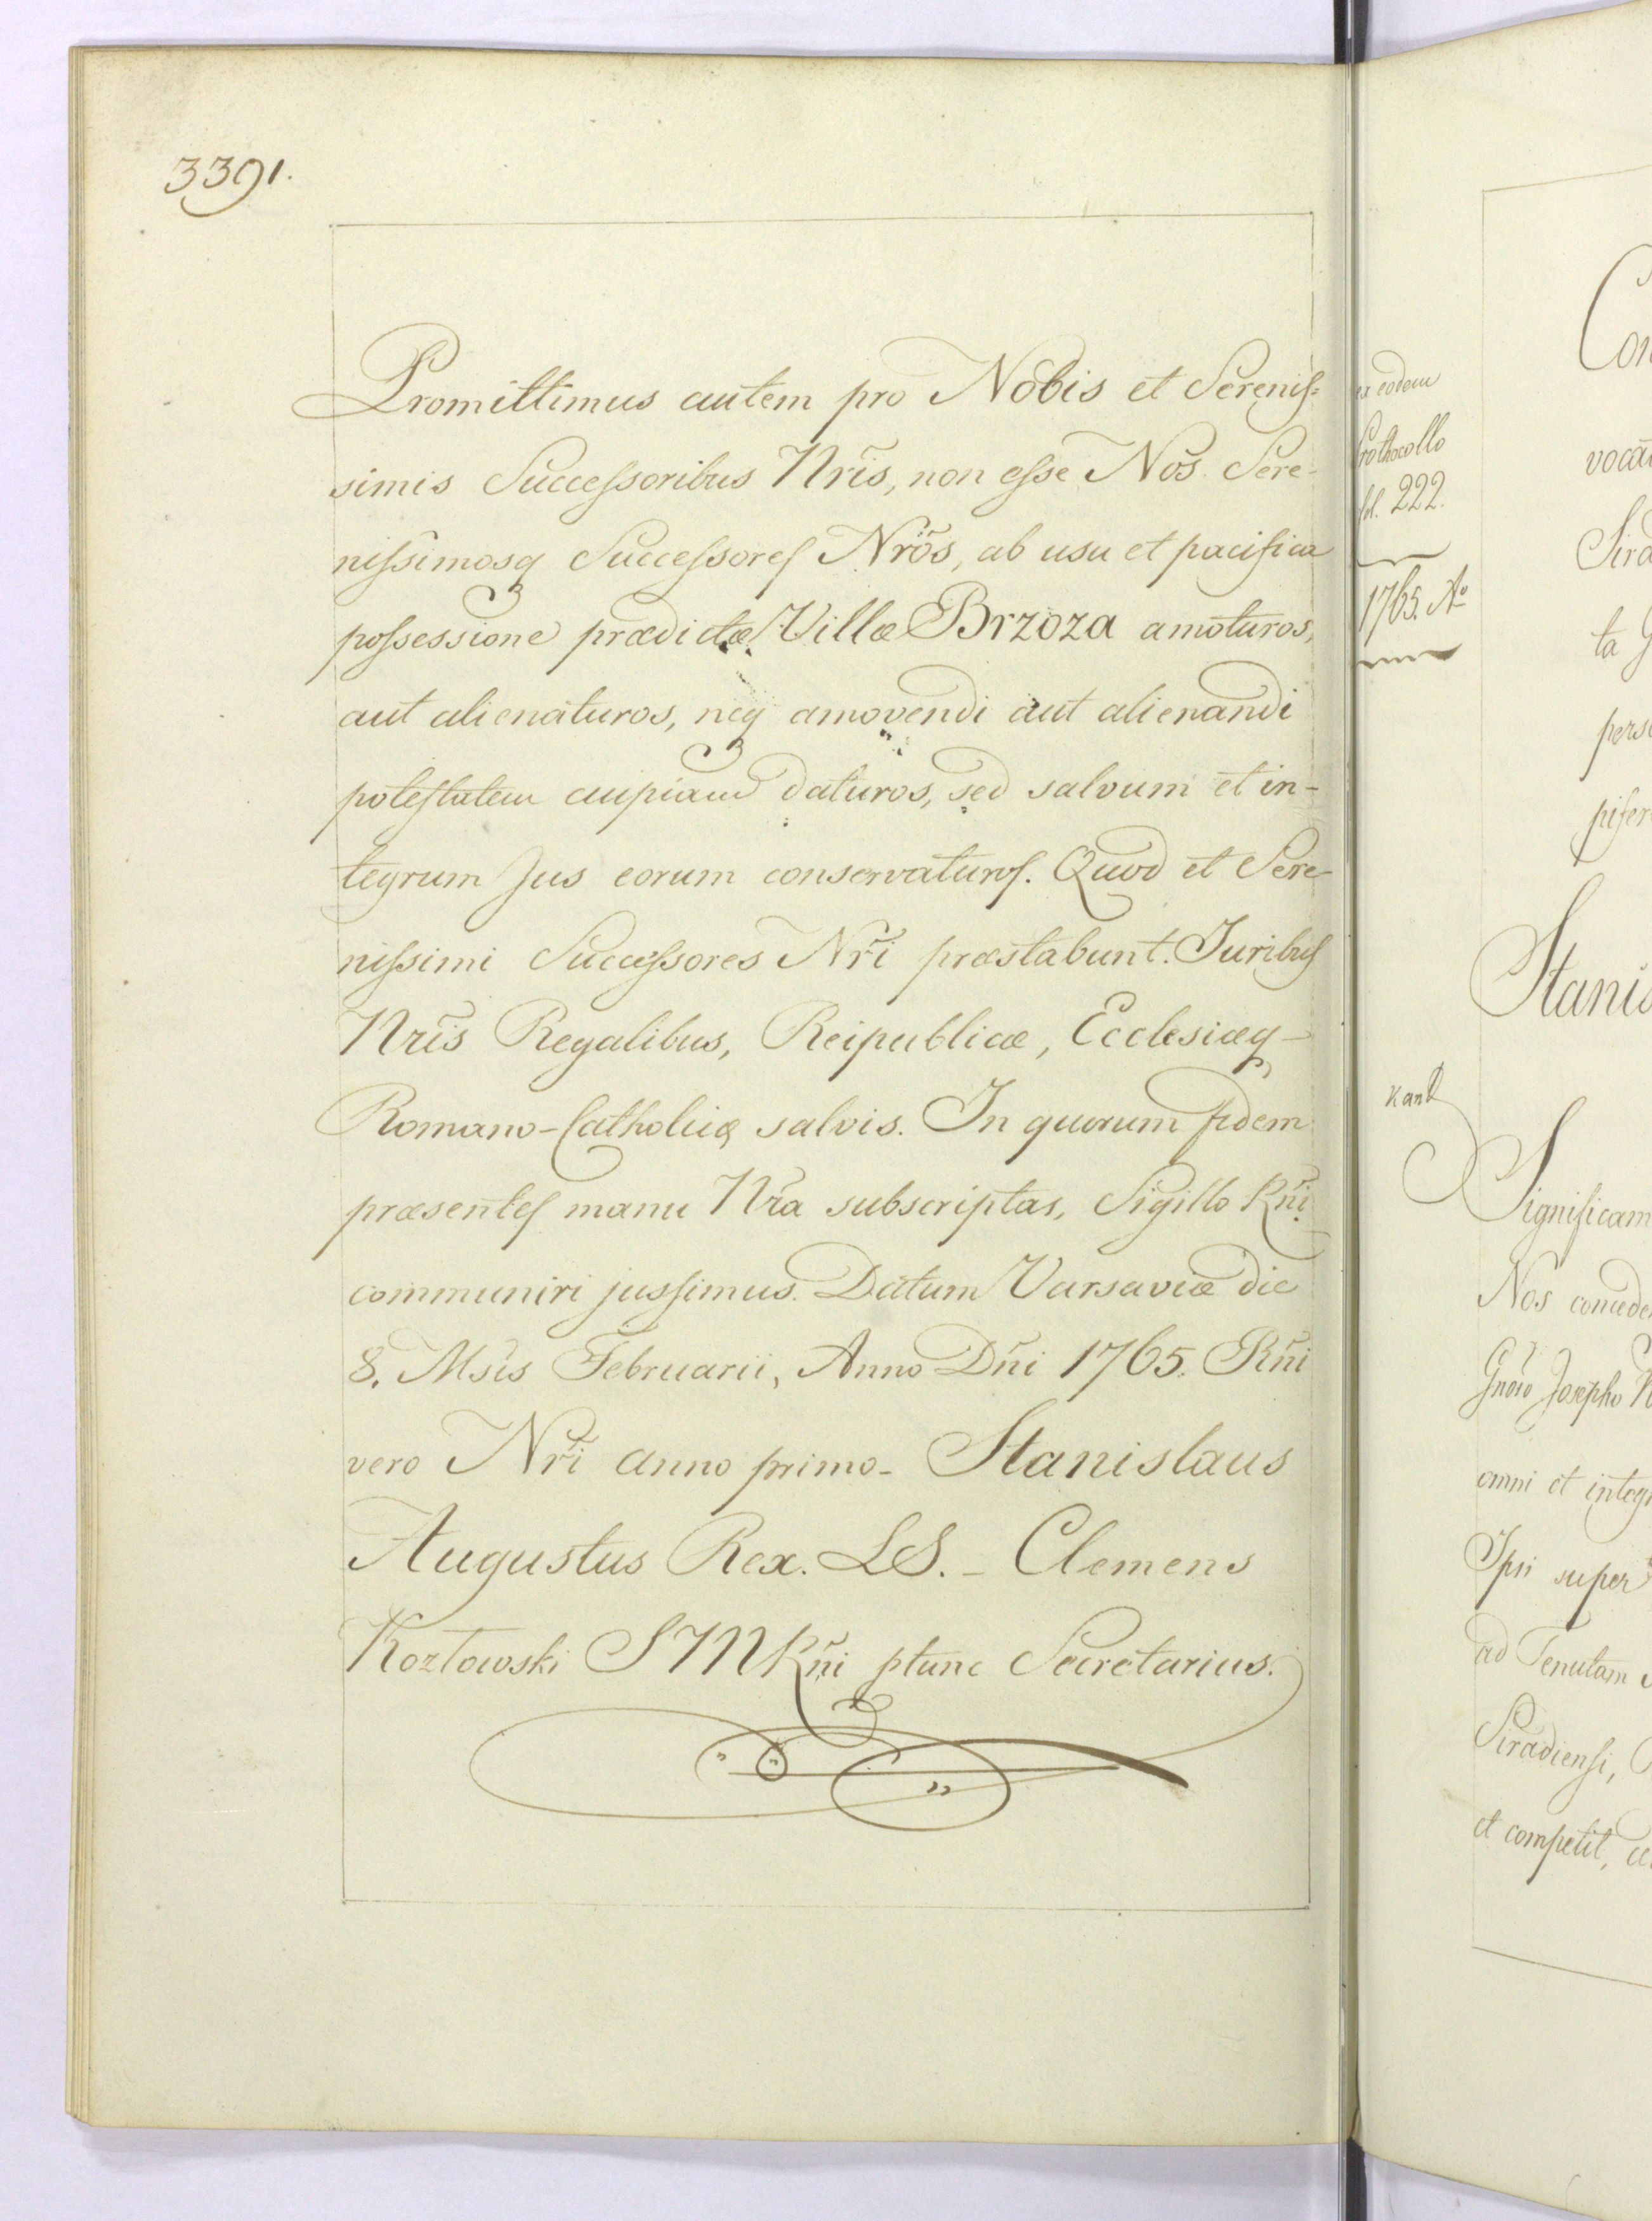 3391.
Promittimus autem pro Nobis et Sereniſ=
simis Succeſsoribus Nr̃is, non eſse Nos Sere-
niſsimosq Succeſsoreſ Nrõs, ab usu et pacifica
poſsessione prædictæ Villæ Brzoza amoturos,
aut alienaturos, neq amovendi aut alienandi
poteſtatem cuipiam daturos, sed salvum et in-
tegrum Jus eorum conservaturoſ. Quod et Sere-
niſsimi Succeſsores Nr̃i præstabunt. Juribuſ
Nr̃is Regalibus, Reipublicæ, Ecclesiæq-
Romano-Catholicæ salvis. In quorum fidem
præsenteſ manu Nr̃a subscriptas, Sigillo Rñi
communiri jusſimus. Datum Varsaviæ die
8. Msis Februarii, Anno Dñi 1765. Rñi
vero Nr̃i anno primo- Stanislaus
Augustus Rex. LS. - Clemens
Kozłowski S M Rñi ptunc Secretarius.
ex eodem
Prothocollo
fol. 222.
1765. Aº
Con
vocan
Sira
ta
perso
pifer
Stanis
Significam
Nos conceden
Gnõso Josepho
omni et integr
Ipsi super
ad Tenutam
Siradiensi,
et competit, ce